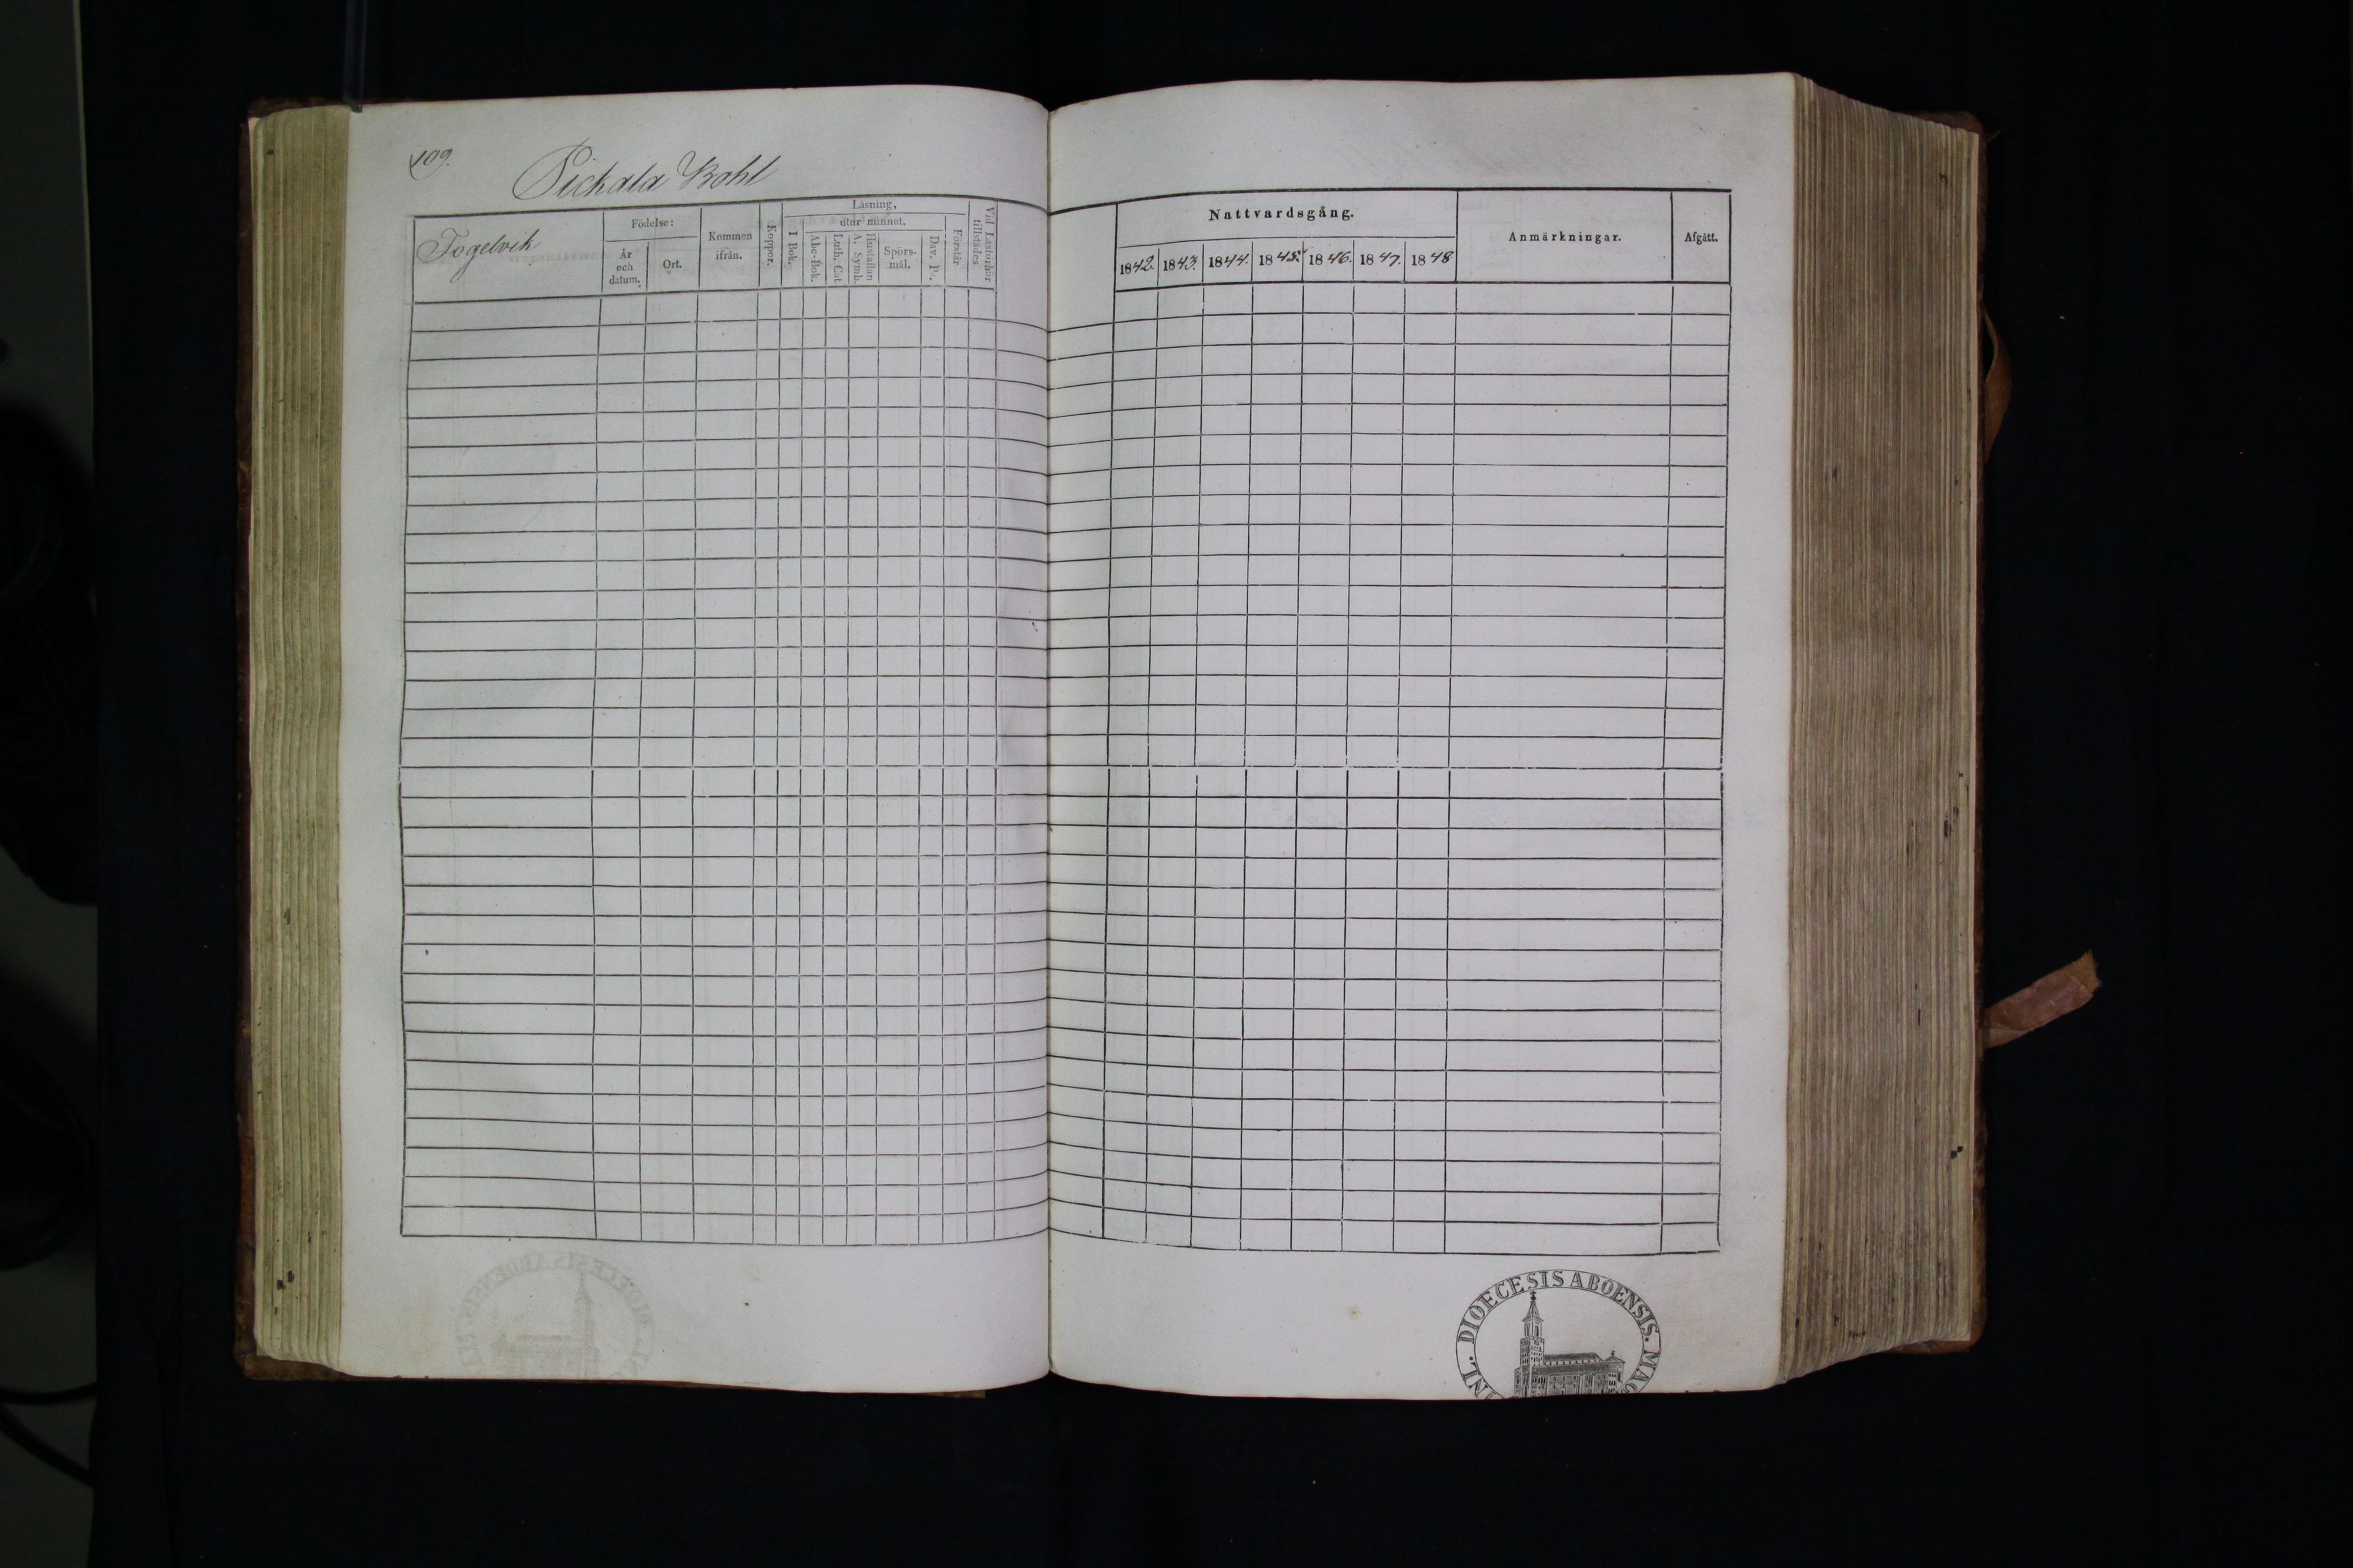 109.
Pickala Bohl
Fogelvik
Födelse:
År och datum.
Ort.
Kommen ifrån.
Koppor.
Läsning,
I Bok.
utur minnet.
Abc-Bok.
Luth. Cat
A. Symb.
Hustaflan
Spörs-
mål.
Dav. P.
Förstår
Vid Läsförhör
tillstädes
Nattvardsgång.
1842. 1843. 1844. 1845. 1846. 1847. 1848
Anmärkningar.
Afgått.
DIOECESIS ABOENSIS.